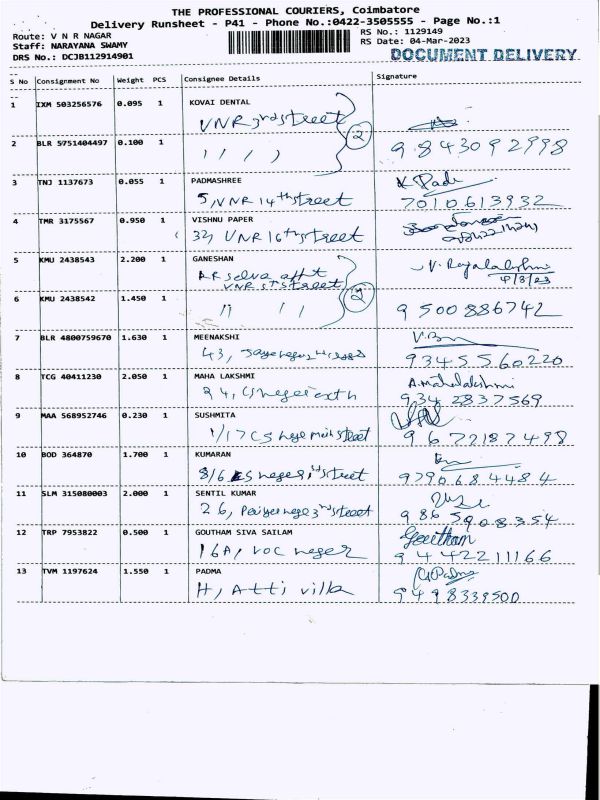 THE PROFESSIONAL COURIERS, Coimbatore
Delivery Runsheet - P41 - Phone No.:0422-3505555 - Page No.:1
Route: V N R NAGAR
RS No.: 1129149
Staff: NARAYANA SWAMY
RS Date: 04-Mar-2023
DRS No.: DCJB112914901
DOCUMENT DELIVERY
S No Consignment No Weight PCS Consignee Details Signature
1 IXM 503256576 0.095 1 KOVAI DENTAL
VNR 3rd street
2
2 BLR 5751404497 0.100 1
9843092998
3 TNJ 1137673 0.055 1 PADMASHREE
5, VNR 14th street 7010613932
4 TMR 3175567 0.950 1 VISHNU PAPER
32, VNR 16th street
5 KMU 2438543 2.200 1 GANESHAN V. Rajalakshmi
RR selva 4/3/23
VNR street
2
6 KMU 2438542 1.450 1
9500886742
7 BLR 4800759670 1.630 1 MEENAKSHI
43, 9345560220
8 TCG 40411230 2.050 1 MAHA LAKSHMI A. Mahalakshmi
9342837569
9 MAA 568952746 0.230 1 SUSHMITA
1/17 CS nagar main street 9672187498
10 BOD 364870 1.700 1 KUMARAN
8/6 street 9790684484
11 SLM 315080003 2.000 1 SENTIL KUMAR
26, Periyar nagar 3rd street 9865908354
12 TRP 7953822 0.500 1 GOUTHAM SIVA SAILAM Goutham
16A, VOC nagar 9442211166
13 TVM 1197624 1.550 1 PADMA Padma
H, Atti villa 9498339500